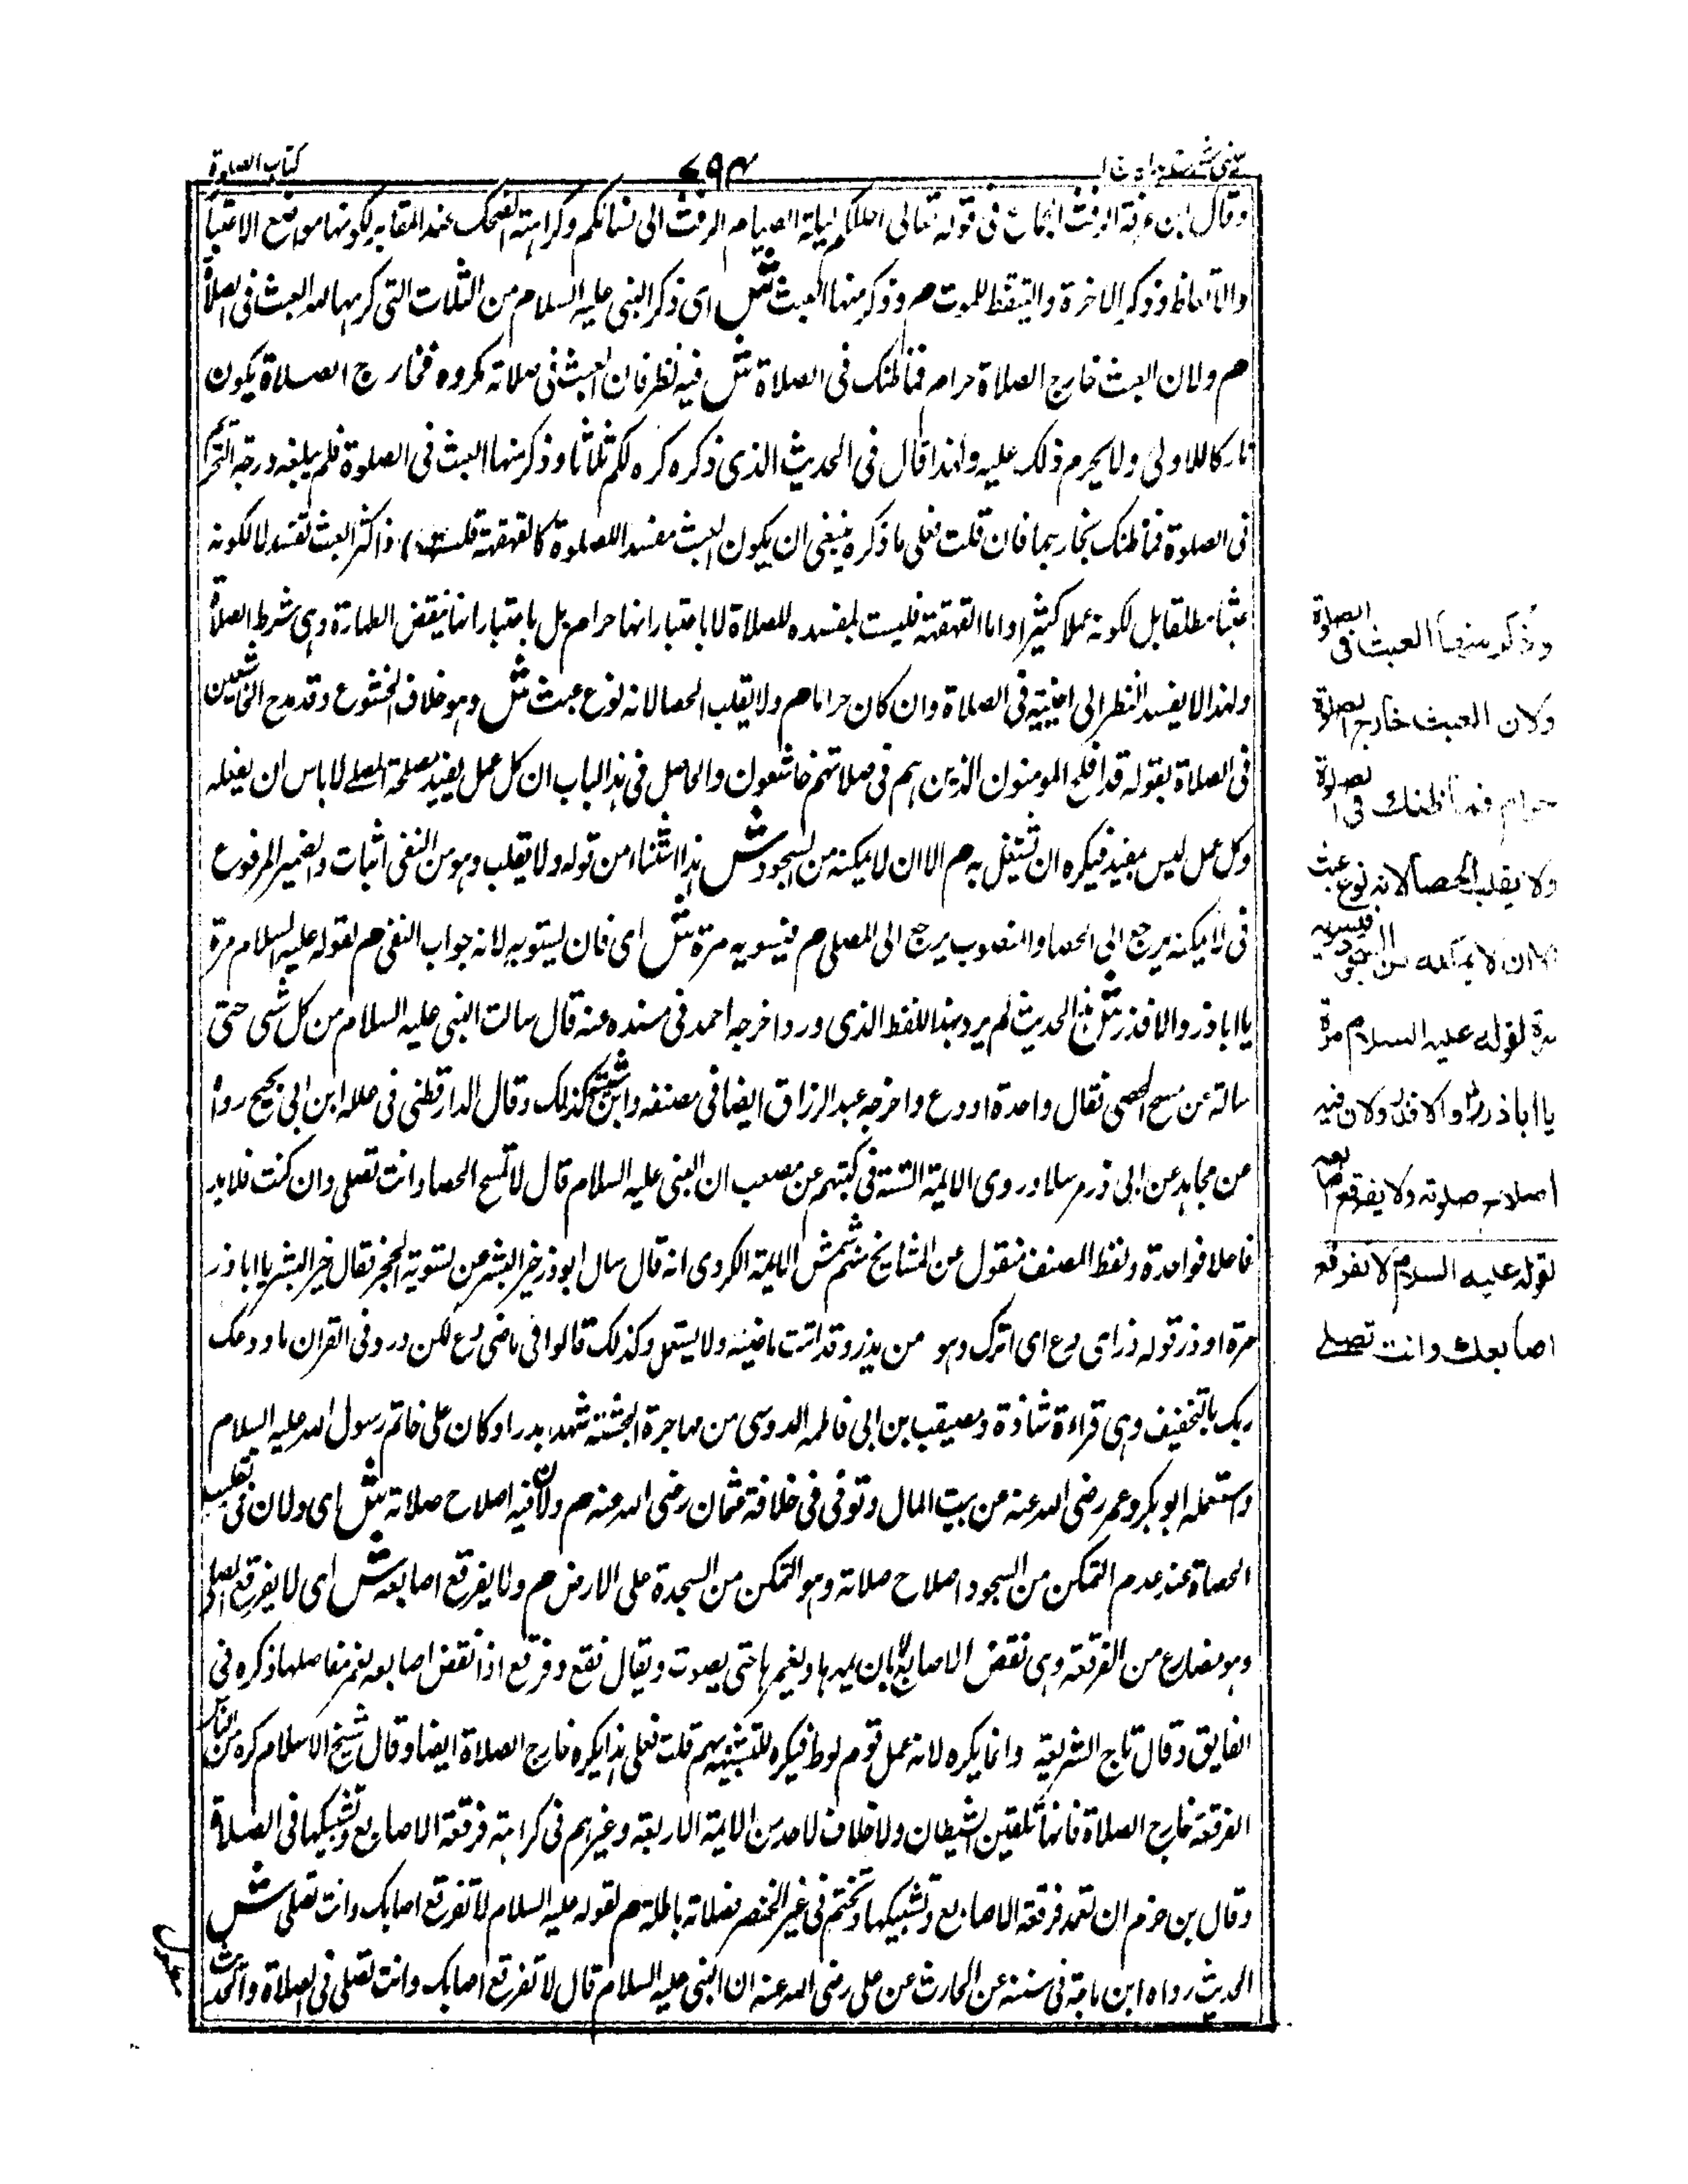 كتاب الصلوة
۷۹۴
وقال ابن عرفة الرفث الجماع فى قوله تعالى احل لكم ليلة الصيام الرفث الى نسائكم وكراهته الضحك عند المقابر لكونها مواضع الاعتبار
والاتعاظ وذكر الاخرة والتيقظ للموت م وذكر منها العبث ش اى ذكر النبى عليه السلام من الثلاث التى كرهها الله العبث فى الصلاة
م ولان العبث خارج الصلاة حرام فما ظنك فى الصلاة ش فيه نظر فان العبث فى صلاته مكروه فخارج الصلاة يكون
تاركا للاولى ولا يحرم ذلك عليه ولهذا قال فى الحديث الذى ذكره كره لكم ثلاثا وذكر منها العبث فى الصلوة فلم يبلغه درجة التحريم
فى الصلوة فما ظنك بخارجها فان قلت فعلى ما ذكره ينبغى ان يكون العبث مفسدا للصلوة كالقهقهة قلت اكثر العبث تفسد لا لكونه
عبثا مطلقا بل لكونه عملا كثيرا واما القهقهة فليست بمفسده للصلاة لا باعتبار انها حرام بل باعتبار انها ينقض الطهارة وهى شرط الصلاة
ولهذا لا يفسد النظر الى اجنبية فى الصلاة وان كان حراما م ولا يقلب الحصا لانه نوع عبث ش وهو خلاف الخشوع وقد مدح الخاشعين
فى الصلاة بقوله قد افلح المومنون الذين هم فى صلاتهم خاشعون والحاصل فى هذا الباب ان كل عمل يفيد مصلحة المصلے لا باس ان يفعله
وكل عمل ليس بمفيد فيكره ان تشتغل به م الا ان لا يمكنه من السجود ش هذا استثناء من قوله ولا يقلب وهو من النفى اثبات والضمير المرفوع
فى لا يمكنه يرجع الى الحصا والمنصوب يرجع الى المصلى م فيسويه مرة ش اى فان يستويه لانه جواب النفى م لقوله عليه السلام مرة
يا ابا ذر والا فذر ش هذا الحديث لم يرد بهذا اللفظ الذى ورد اخرجه احمد فى مسنده عنه قال سالت النبى عليه السلام من كل شى حتى
سالته عن مسح الحصى فقال واحدة او دع واخرجه عبد الرزاق ايضا فى مصنفه وابن ابى شيبة كذلك وقال الدارقطنى فى علله ابن ابى نجيح رواه
عن مجاهد عن ابى ذر مرسلا وروى الايمة الستة فى كتبهم عن معيقب ان النبى عليه السلام قال لا تمسح الحصا وانت تصلى وان كنت فلا بد
فاعلا فواحدة ولفظ المصنف منقول عن المشايخ منهم شمش الايمة الكردى انه قال سال ابو ذر خير البشر عن تسوية الحجر فقال خير البشر يا ابا ذر
مرة او ذر قوله ذر اى دع اى اترك وهو من يذر وقد امتت ماضيه ولا يستعمل وكذلك قالوا فى ماضى دع لكن ورد فى القران ما ودعك
ربك بالتخفيف وهى قراءة شاذة ومعيقب بن ابى فاطمه الدوسى من مهاجرة الحبشة شهد بدرا وكان على خاتم رسول الله عليه السلام
واستعمله ابو بكر وعمر رضى الله عنه من بيت المال وتوفى فى خلافة عثمان رضى الله عنه م ولان فيه اصلاح صلاته ش اى ولان فى تقليب
الحصاة عند عدم التمكن من السجود اصلاح صلاته وهو التمكن من السجدة على الارض م ولا يفرقع اصابعه ش اى لا يفرقع المصلى
وهو مضارع من الفرقعة وهى نقض الاصابع بان يمدها ويغمزها حتى يصوت ويقال نقع وفرقع اذا نقض اصابعه بغمز مفاصلها ذكره فى
الفايق وقال تاج الشريعة وانما يكره لانه عمل قوم لوط فيكره للتشبيه بهم قلت فعلى هذا يكره خارج الصلاة ايضا وقال شيخ الاسلام كره من الناس
الفرقعة خارج الصلاة فانها تلقين الشيطان ولا خلاف لاحد من الايمة الاربعة وغيرهم فى كراهة فرقعة الاصابع وتشبيكها فى الصلاة
وقال بن حزم ان تعمد فرقعة الاصابع وتشبيكها وتختم فى غير الخنصر فصلاته باطلة م لقوله عليه السلام لا تفرقع اصابك وانت تصلى ش
الحديث رواه ابن ماجة فى سننه عن الحارث عن على رضى الله عنه ان النبى عليه السلام قال لا تفرقع اصابك وانت تصلى فى الصلاة والحارث
وذكر منها العبث فى الصلوة
ولان العبث خارج الصلوة
حرام فما ظنك فى الصلوة
ولا يقلب الحصا لانه نوع عبث
الا ان لا يمكنه من السجود فيسويه
مرة لقوله عليه السلام مرة
يا ابا ذر والا فذر ولان فيه
اصلاح صلوته ولا يفرقع اصابعه
لقوله عليه السلام لا تفرقع
اصابعك وانت تصلے